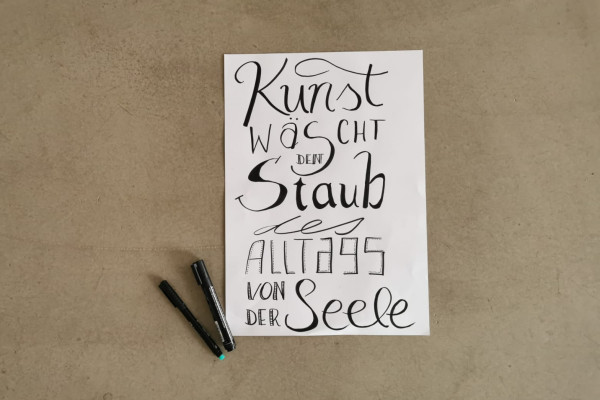 Kunst
wäscht
den
Staub
des
Alltags
von
der Seele